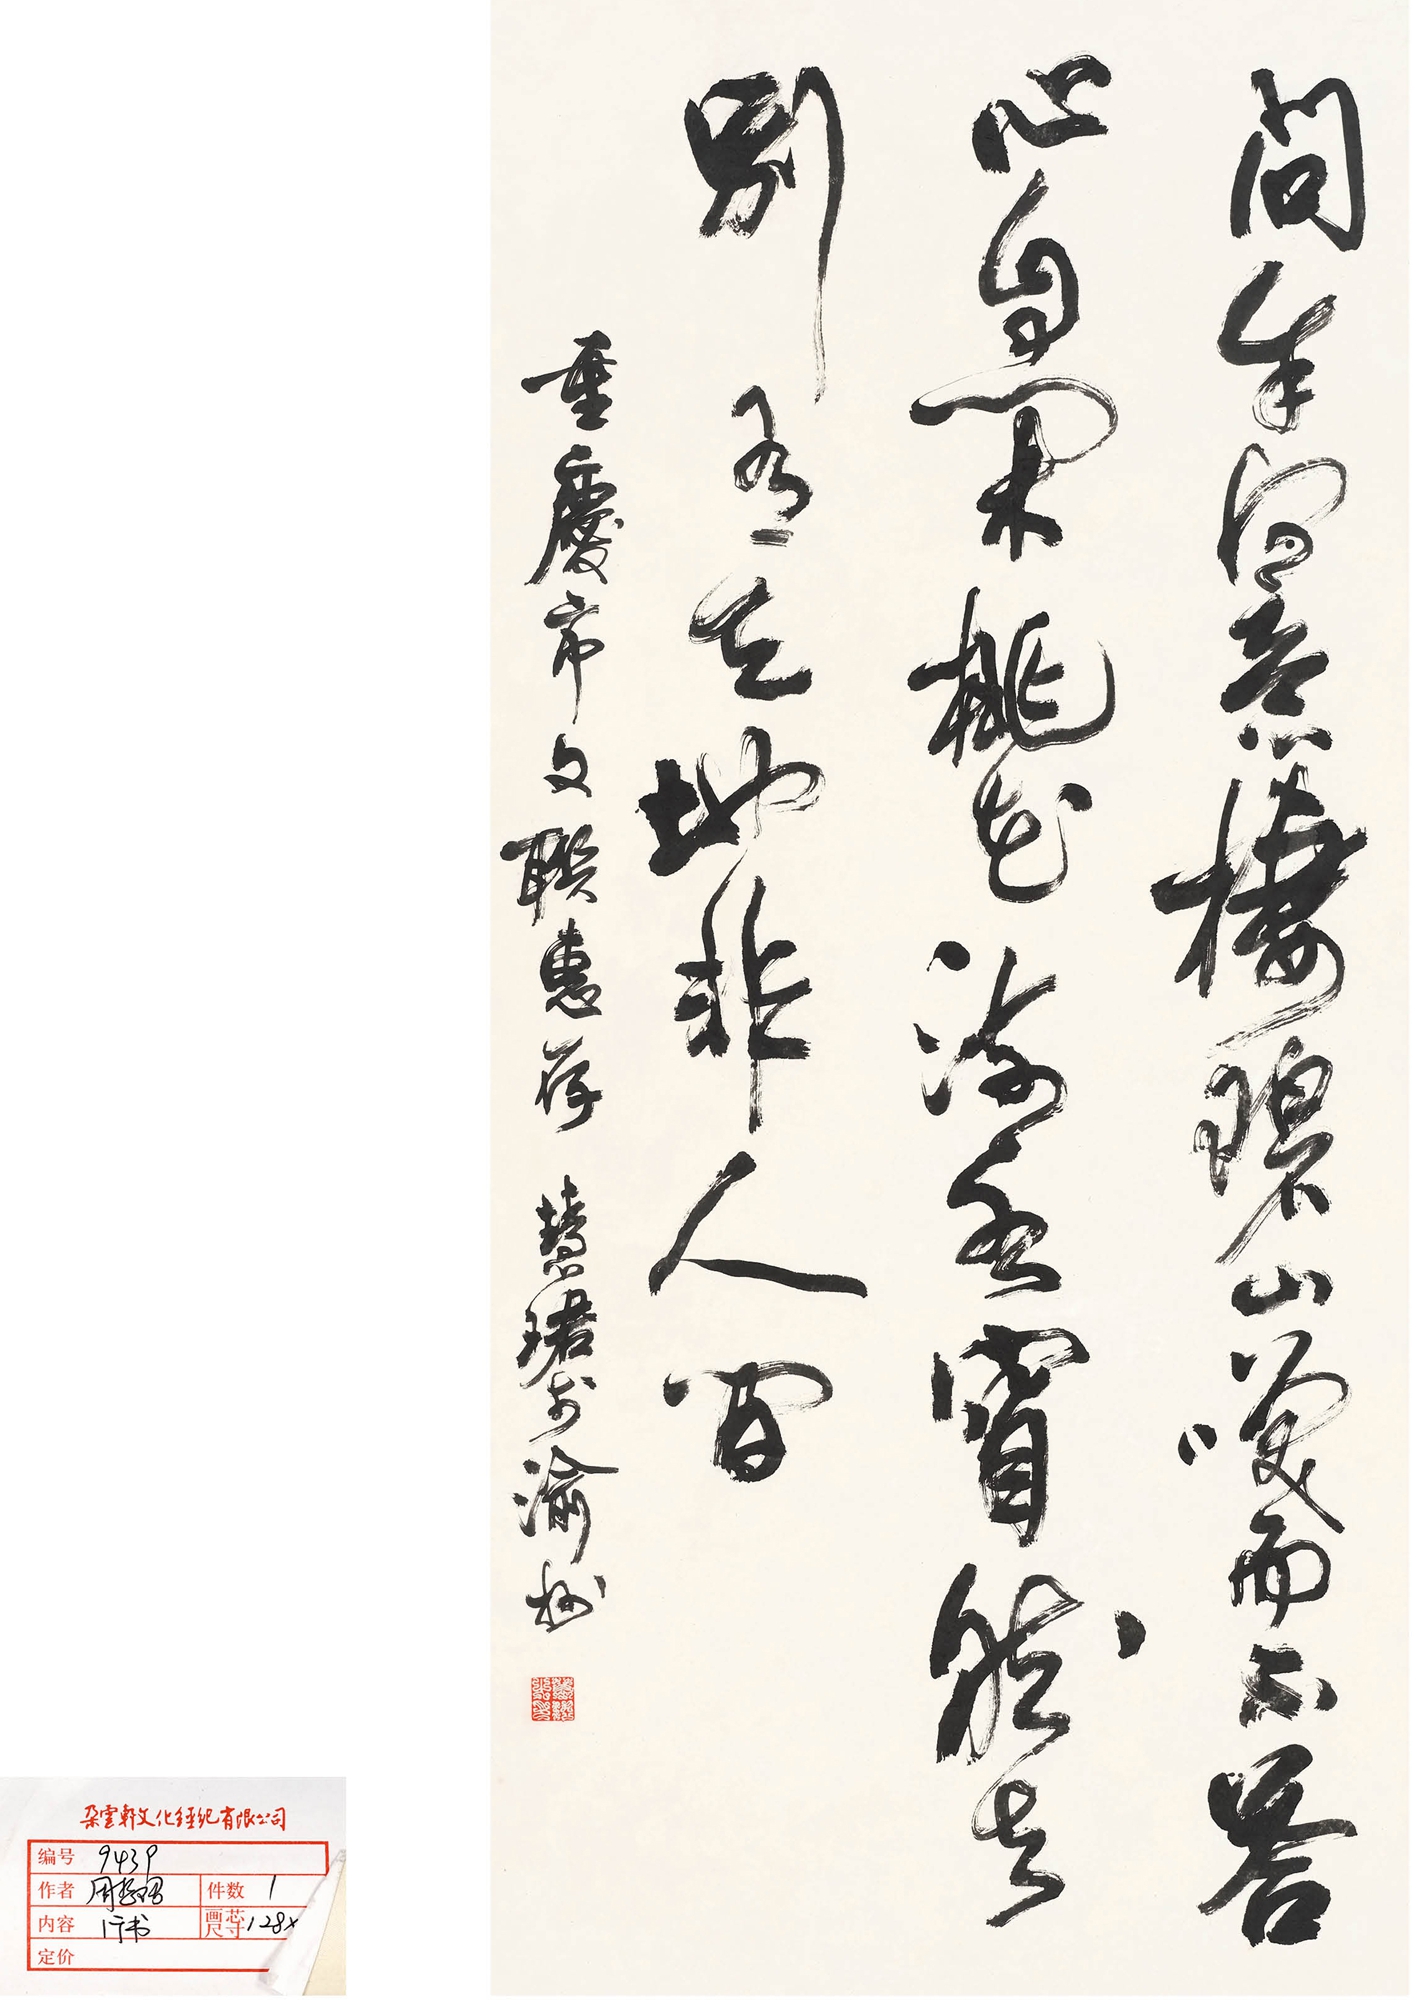 問余何意棲碧山咲而不答
心自閑桃花流水窅然去
別有天地非人間
重慶市文聯惠存 慧珺於渝州
朵雲軒文化经纪有限公司
编号 9439
作者 周慧珺 件数 1
内容 行书 画芯尺寸 128×
定价